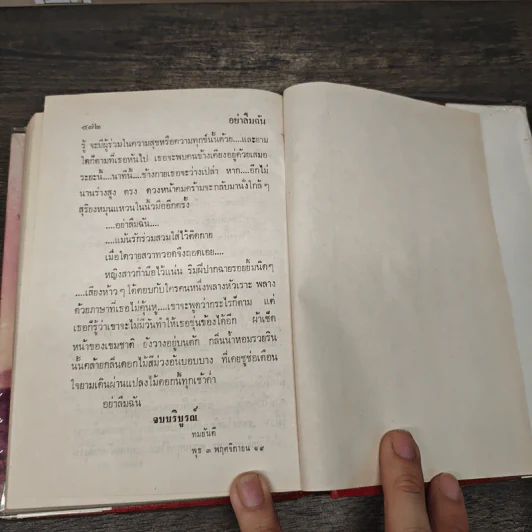 ๔๗๒ อย่าลืมฉัน
รู้ จะมีผู้ร่วมในความสุขหรือความทุกข์นั้นด้วย....และยาม
ใดก็ตามที่เธอหันไป เธอจะพบคนข้างเคียงอยู่ด้วยเสมอ
ระยะนี้....นาทีนี้....ข้างกายเธอจะว่างเปล่า หาก....อีกไม่
นานร่างสูง ตรง ดวงหน้าคมคร้ามจะกลับมานั่งใกล้ ๆ
สุรัองหมุนแหวนในนิ้วมืออีกครั้ง
....อย่าลืมฉัน....
....แม้นรักร่วมสวมใส่ไว้ติดกาย
เมื่อใดวายสวาทวอดจึงถอดเอย....
หญิงสาวกำมือไว้แน่น ริมฝีปากฉายรอยยิ้มนิดๆ
....เสียงห้าว ๆ โต้ตอบกับใครคนหนึ่งพลางหัวเราะ พลาง
ด้วยภาษาที่เธอไม่คุ้นหู....เขาจะพูดว่ากระไรก็ตาม แต่
เธอก็รู้ว่าเขาจะไม่มีวันทำให้เธอขุ่นข้องได้อีก ผ้าเช็ด
หน้าของเขมชาติ ยังวางอยู่บนตัก กลิ่นน้ำหอมรวยริน
นั้นคล้ายกลิ่นดอกไม้สีม่วงอันบอบบาง ที่เคยชูช่อเตือน
ใจยามเดินผ่านแปลงไม้ดอกนี้ทุกเช้าค่ำ
อย่าลืมฉัน
จบบริบูรณ์
ทมยันตี
พุธ ๓ พฤศจิกายน ๑๙